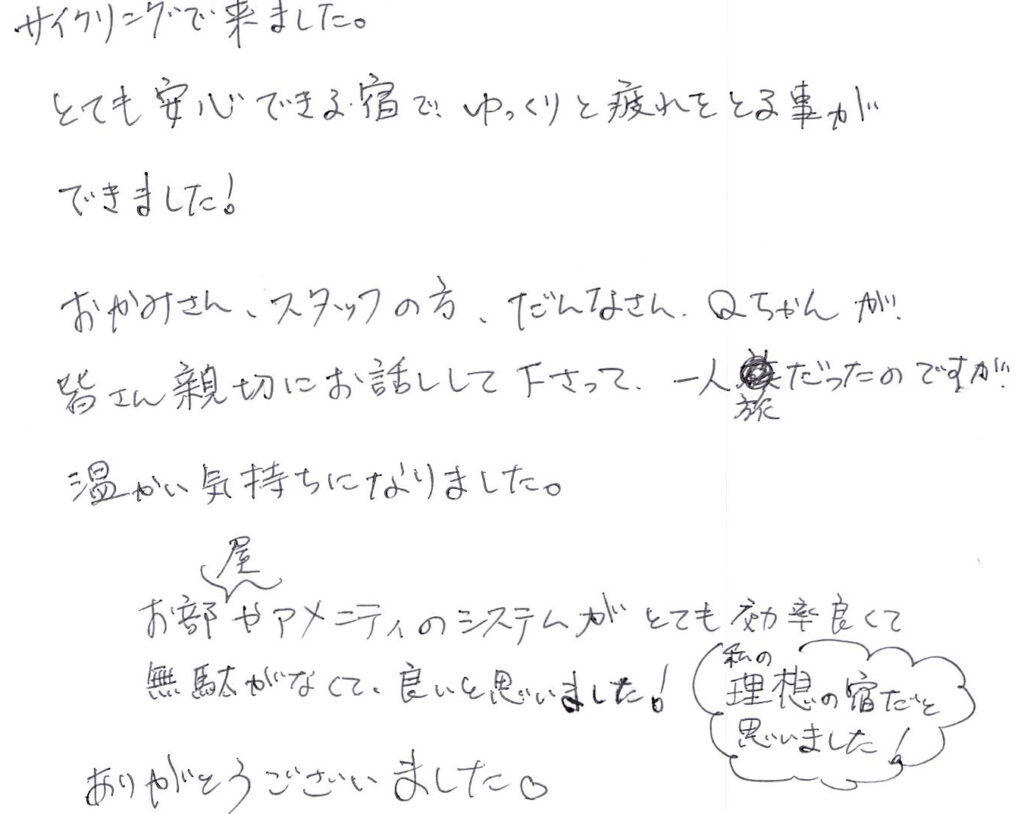 サイクリングで来ました。
とても安心できる宿で、ゆっくりと疲れをとる事が
できました!
おかみさん、スタッフの方、だんなさん、Qちゃんが、
皆さん親切にお話しして下さって、一人旅だったのですが、
温かい気持ちになりました。
お部屋やアメニティのシステムがとても効率良くて
無駄がなくて、良いと思いました!
私の
理想の宿だと
思いました!
ありがとうございました。